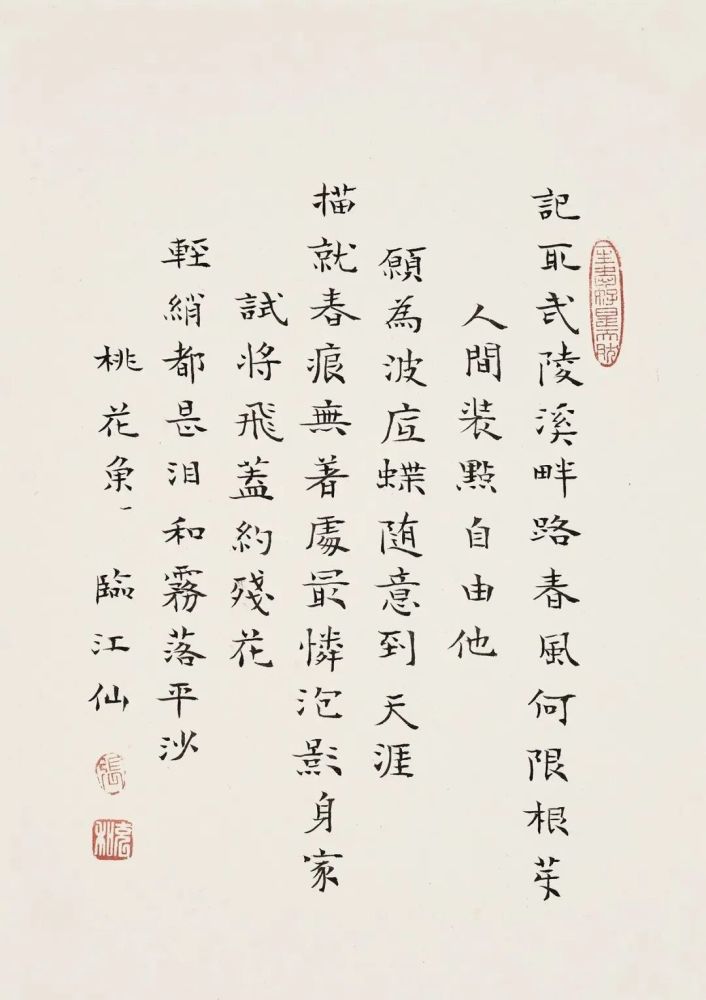 記取武陵溪畔路春風何限根芽
人間裝點自由他
願為波底蝶随意到天涯
描就春痕無著處最憐泡影身家
試將飛蓋約殘花
輕綃都是泪和霧落平沙
桃花魚、臨江仙
張
充和